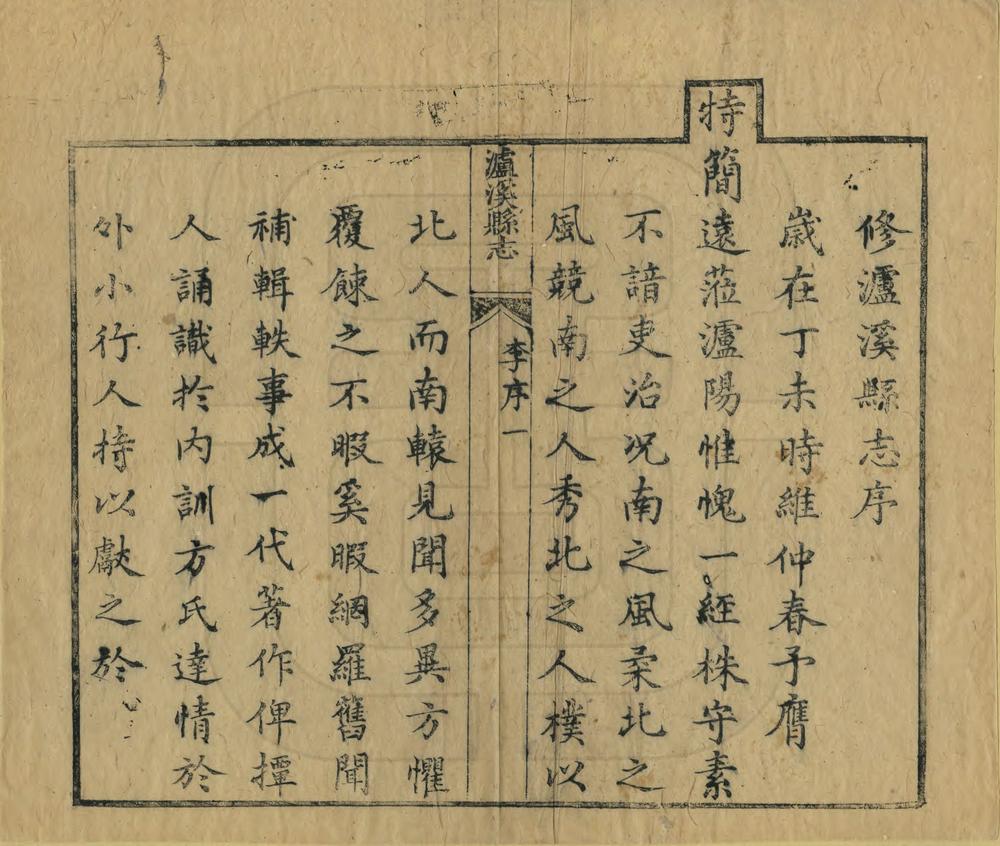 修瀘溪縣志序
歲在丁未時維仲春予膺
特簡遠蒞瀘陽惟愧一經株守素
不諳吏治况南之風柔北之
風競南之人秀北之人樸以
瀘溪縣志
李序一
北人而南轅見聞多異方懼
覆餗之不暇奚暇網羅舊聞
補輯軼事成一代著作俾撢
人誦識於内訓方氏達情於
外小行人持以獻之於